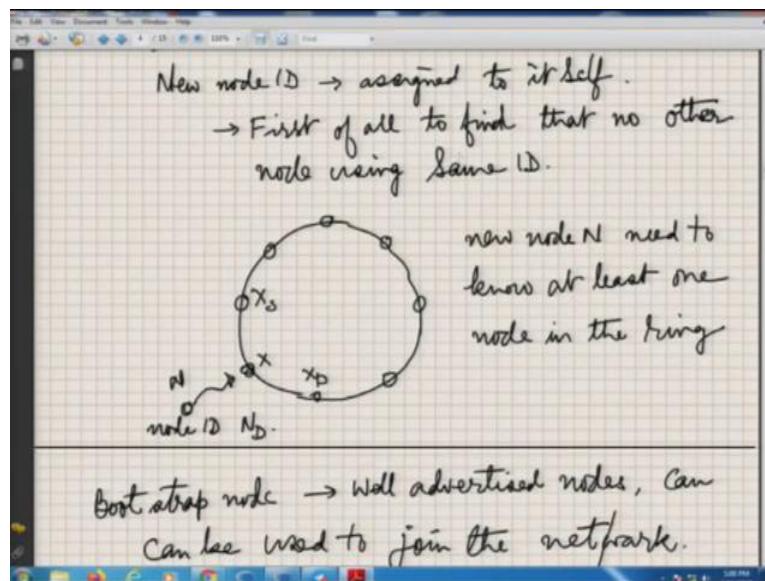 File Edit View Document Tools Window Help
4 / 15 110% Find
New node ID → assigned to itself.
→ First of all to find that no other
node using Same ID.
new node N need to
know at least one
node in the ring
Xs
X
XD
N
node ID ND.
Boot strap node → Well advertised nodes, Can
Can be used to join the network.
5:00 PM